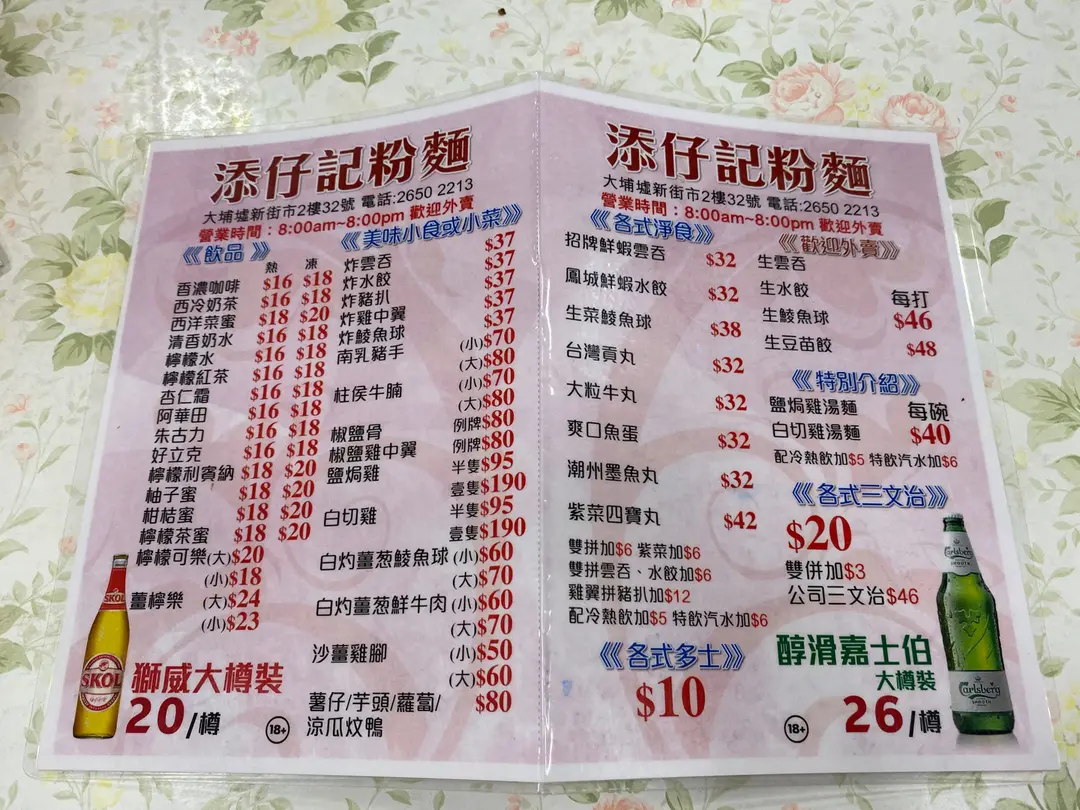 添仔記粉麵
大埔墟新街市2樓32號 電話:2650 2213
營業時間：8:00am~8:00pm 歡迎外賣
《飲品》
熱 凍
香濃咖啡 $16 $18
西冷奶茶 $16 $18
西洋菜蜜 $18 $20
清香奶水 $16 $18
檸檬水 $16 $18
檸檬紅茶 $16 $18
杏仁霜 $16 $18
阿華田 $16 $18
朱古力 $16 $18
好立克 $16 $18
檸檬利賓納 $18 $20
柚子蜜 $18 $20
柑桔蜜 $18 $20
檸檬茶蜜 $18 $20
檸檬可樂(大)$20
(小)$18
薑檸樂 (大)$24
(小)$23
SKOL
SKOL
獅威大樽裝
20/樽
《美味小食或小菜》
炸雲吞 $37
炸水餃 $37
炸豬扒 $37
炸雞中翼 $37
炸鯪魚球 $37
南乳豬手 (小)$70
(大)$80
柱侯牛腩 (小)$70
(大)$80
椒鹽骨 例牌$80
椒鹽雞中翼 例牌$80
鹽焗雞 半隻$95
壹隻$190
白切雞 半隻$95
壹隻$190
白灼薑葱鯪魚球 (小)$60
(大)$70
白灼薑葱鮮牛肉 (小)$60
(大)$70
沙薑雞腳 (小)$50
(大)$60
薯仔/芋頭/蘿蔔/ $80
涼瓜炆鴨
18+
添仔記粉麵
大埔墟新街市2樓32號 電話:2650 2213
營業時間：8:00am~8:00pm 歡迎外賣
《各式淨食》
招牌鮮蝦雲吞 $32
鳳城鮮蝦水餃 $32
生菜鯪魚球 $38
台灣貢丸 $32
大粒牛丸 $32
爽口魚蛋 $32
潮州墨魚丸 $32
紫菜四寶丸 $42
雙拼加$6 紫菜加$6
雙拼雲吞、水餃加$6
雞翼拼豬扒加$12
配冷熱飲加$5 特飲汽水加$6
《各式多士》
$10
《歡迎外賣》
生雲吞
生水餃 每打
生鯪魚球 $46
生豆苗餃 $48
《特別介紹》
鹽焗雞湯麵 每碗
白切雞湯麵 $40
配冷熱飲加$5 特飲汽水加$6
《各式三文治》
$20
雙併加$3
公司三文治$46
醇滑嘉士伯
大樽裝
18+
26/樽
Carlsberg
Carlsberg